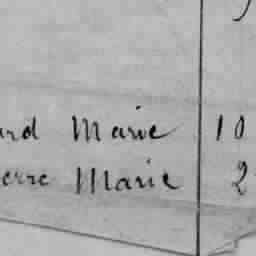 ard Marie 10
erre Marie 2